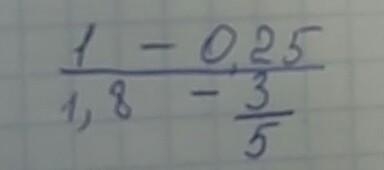 1 - 0,25
1,8 - 3/5